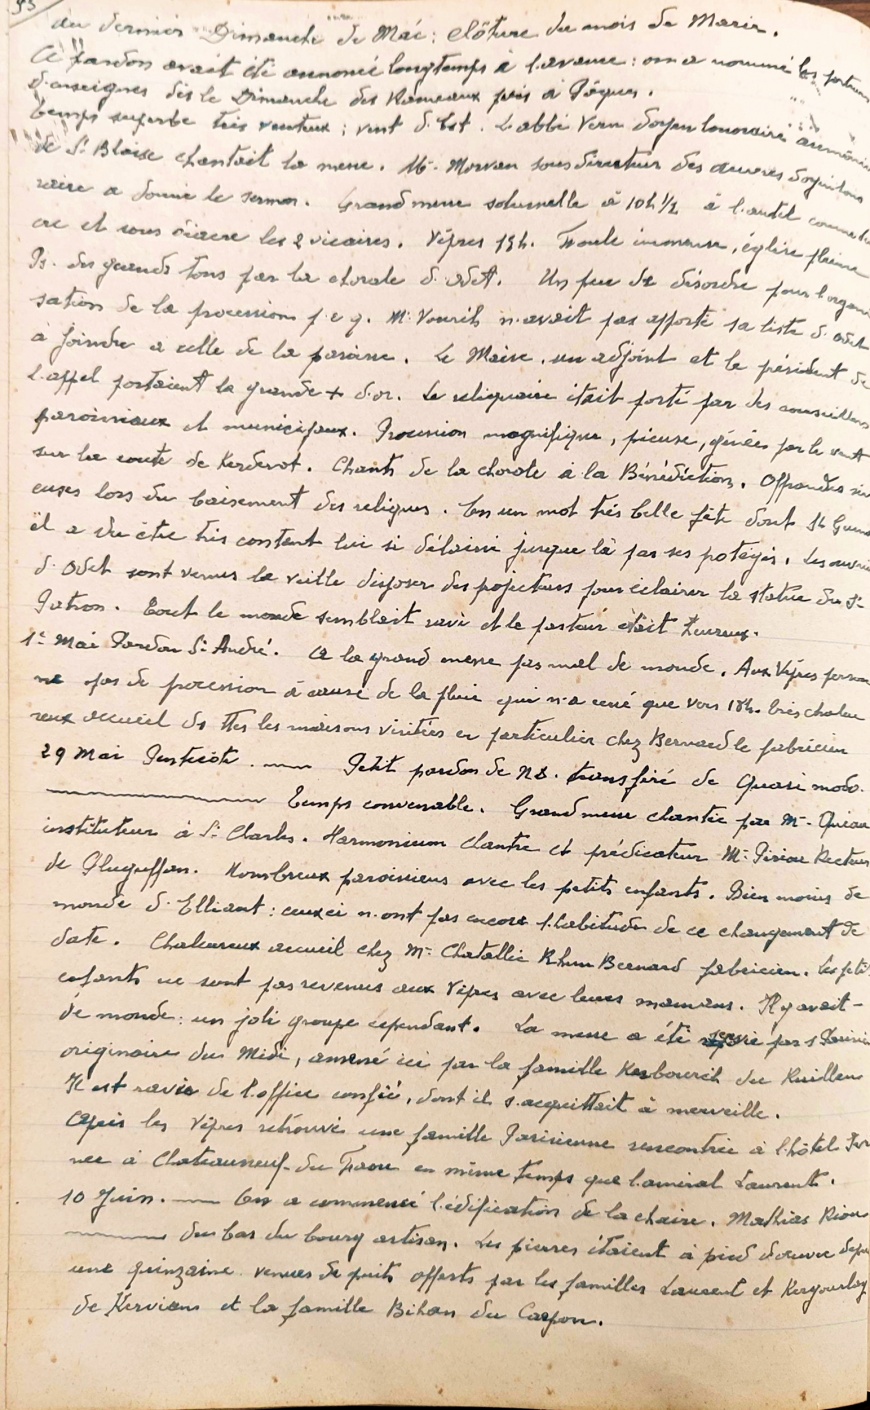 53
du dernier Dimanche de Mai : clôture du mois de Marie.
Ce pardon avait été annoncé longtemps à l'avance : on a nommé les porteurs
d'enseignes dès le Dimanche des Rameaux puis à Pâques.
Temps superbe très venteux ; vent d'Est. L'abbé Vern doyen honoraire aumônier
de St Blaise chantait la messe. Mr Morvan sous directeur des œuvres doyen hono
raire a donné le sermon. Grand messe solennelle à 10h ½ à l'autel comme dia
cre et sous diacre les 2 vicaires. Vêpres 15h. Foule immense, église pleine
Ps. des grands tons par la chorale d'Odet. Un peu de désordre pour l'organi
sation de la procession p.e.q. Mr Vourch n'avait pas apporté sa liste d'Odet
à joindre à celle de la paroisse. Le Maire, un adjoint et le président de
L'appel portaient la grande + d'or. Le reliquaire était porté par des conseillers
paroissiaux et municipaux. Procession magnifique, pieuse, gênée par le vent
sur la route de Kerdevot. Chants de la chorale à la Bénédiction. Offrandes
euses lors du baisement des reliques. En un mot très belle fête dont St
il a dû être très content lui si délaissé jusque là par ses protégés. Les ouvriers
d'Odet sont venus la veille disposer des projecteurs pour éclairer la statue du St
Patron. Tout le monde semblait ravi et le pasteur était heureux.
1er Mai Pardon St André. A la grand messe pas mal de monde. Aux Vêpres person
ne pas de procession à cause de la pluie qui n'a cessé que vers 18h. très chaleu
reux accueil ds ttes les maisons visitées en particulier chez Bernard le fabricien
29 Mai Pentecôte. — Petit pardon de ND. transféré de Quasimodo.
Temps convenable. Grand messe chantée par Mr
instituteur à St Charles. Harmonium chantre et prédicateur Mr Piriou Recteur
de Pluguffan. Nombreux paroissiens avec les petits enfants. Bien moins de
monde d'Elliant : ceux ci n'ont pas encore l'habitude de ce changement de
date. Chaleureux accueil chez Mr Chatallic Rhun Bernard fabricien. Les petits
enfants ne sont pas revenus aux Vêpres avec leurs mamans. Il y avait –
de monde : un joli groupe cependant. La messe a été servie par 1 Parisien
originaire du Midi, amené ici par la famille Kerbourch du Ruillen
Il est ravi de l'office confié, dont il s'acquittait à merveille.
Après les Vêpres retrouvé une famille Parisienne rencontrée à l'hôtel
à Chateauneuf-du Faou en même temps que l'amiral Laurent.
10 Juin. — On a commencé l'édification de la chaire. Mathias Riou
du bas du bourg artisan. Les pierres étaient à pied d'œuvre depuis
une quinzaine venues de puits offerts par les familles Laurent et Kergourlay
de Kerviou et la famille Bihan du Carpon.